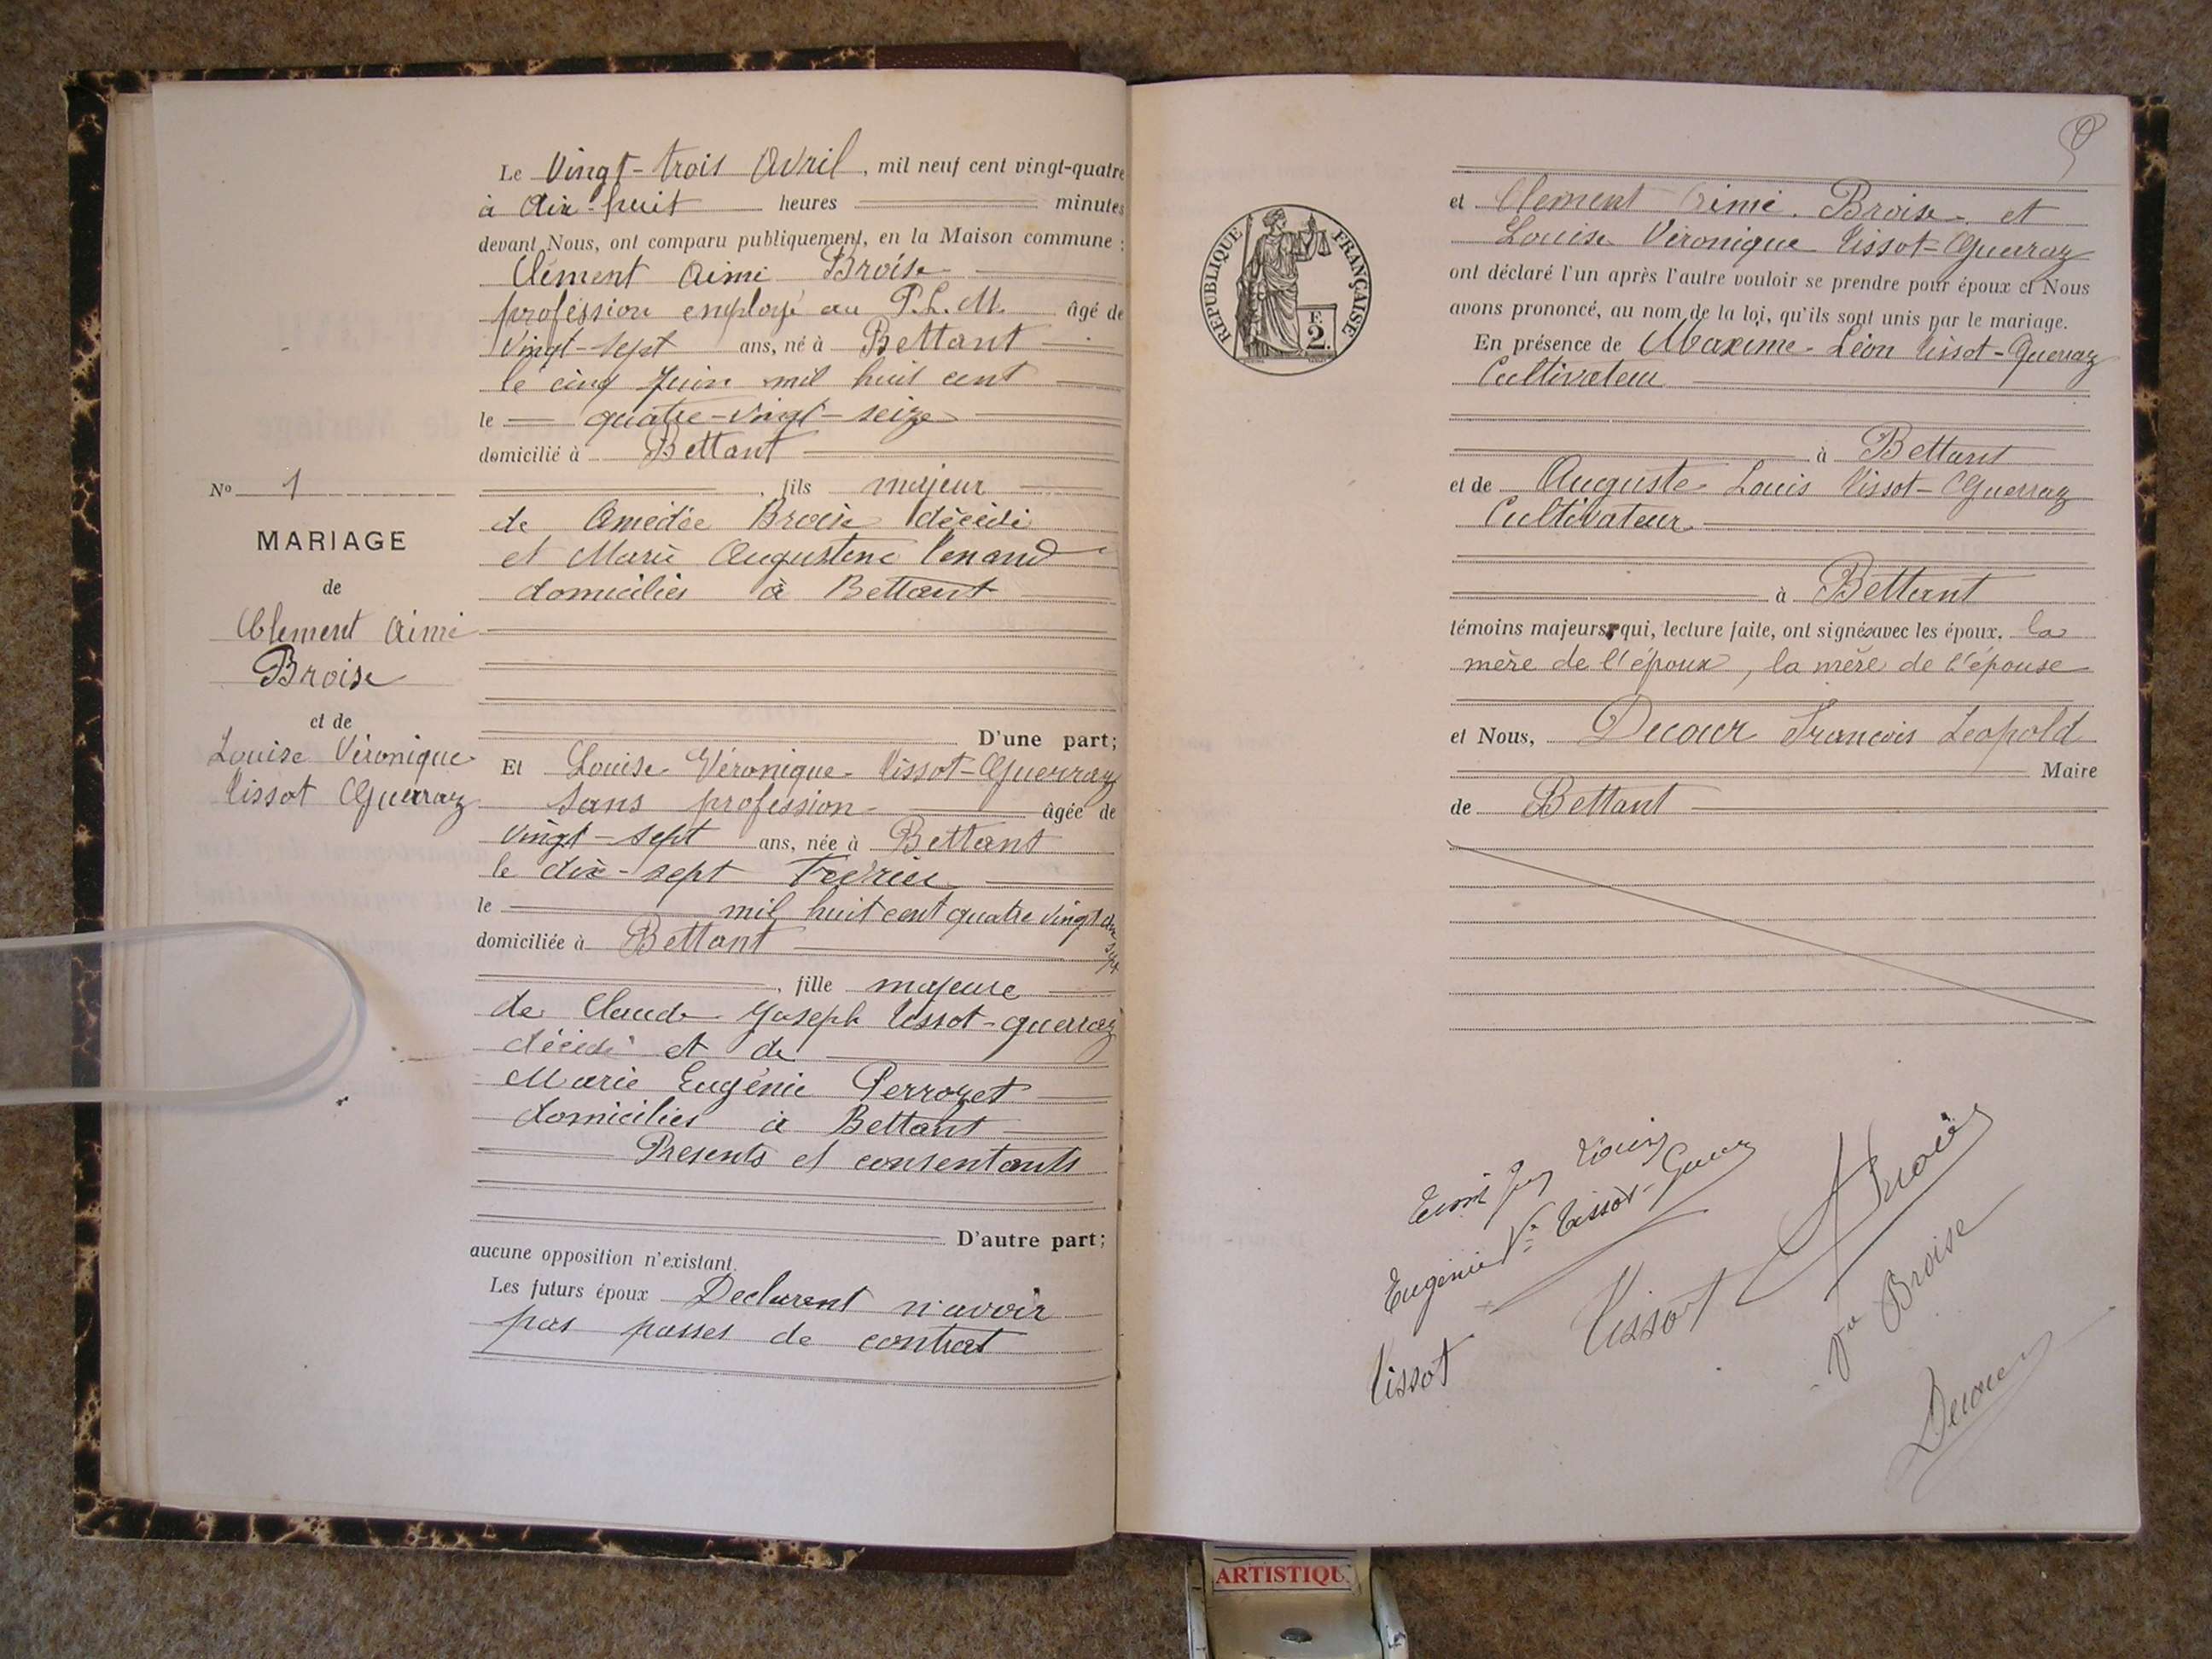 Le Vingt-trois Avril, mil neuf cent vingt-quatre
à dix-huit heures minutes
devant Nous, ont comparu publiquement, en la Maison commune :
Clément Aimé Broise
profession employé au P.L.M. âgé de
vingt-sept ans, né à Bettant
le cinq Juin mil huit cent
le quatre-vingt-seize
domicilié à Bettant
, fils majeur
de Amédée Broise décédé
et Marie Augustine
domiciliés à Bettant
D'une part;
Et Louise Véronique Tissot-Guerraz
sans profession âgée de
vingt-sept ans, née à Bettant
le dix-sept Fevrier
le mil huit cent quatre vingt dix
sept
domiciliée à Bettant
, fille majeure
de Claude Joseph Tissot-Guerraz
décédé et de
Marie Eugénie Perrozet
domiciliés à Bettant
Presents et consentants
D'autre part;
aucune opposition n'existant.
Les futurs époux Declarent n'avoir
pas passes de contrat
No 1
MARIAGE
de
Clement Aimé
Broise
et de
Louise Véronique
Tissot Guerraz
RÉPUBLIQUE FRANÇAISE
F.
2.
9
et Clement Aimé Broise et
Louise Véronique Tissot-Guerraz
ont déclaré l'un après l'autre vouloir se prendre pour époux et Nous
avons prononcé, au nom de la loi, qu'ils sont unis par le mariage.
En présence de Maxime Léon Tissot-Guerraz
Cultivateur
à Bettant
et de Auguste Louis Tissot-Guerraz
Cultivateur
à Bettant
témoins majeurs, qui, lecture faite, ont signé avec les époux, la
mère de l'époux, la mère de l'épouse
et Nous, Decour Francois Leopold
Maire
de Bettant
Louise
Eugénie Ve Tissot-Guerraz
Broise
Tissot
Tissot
Ve Broise
Decour
ARTISTIQU